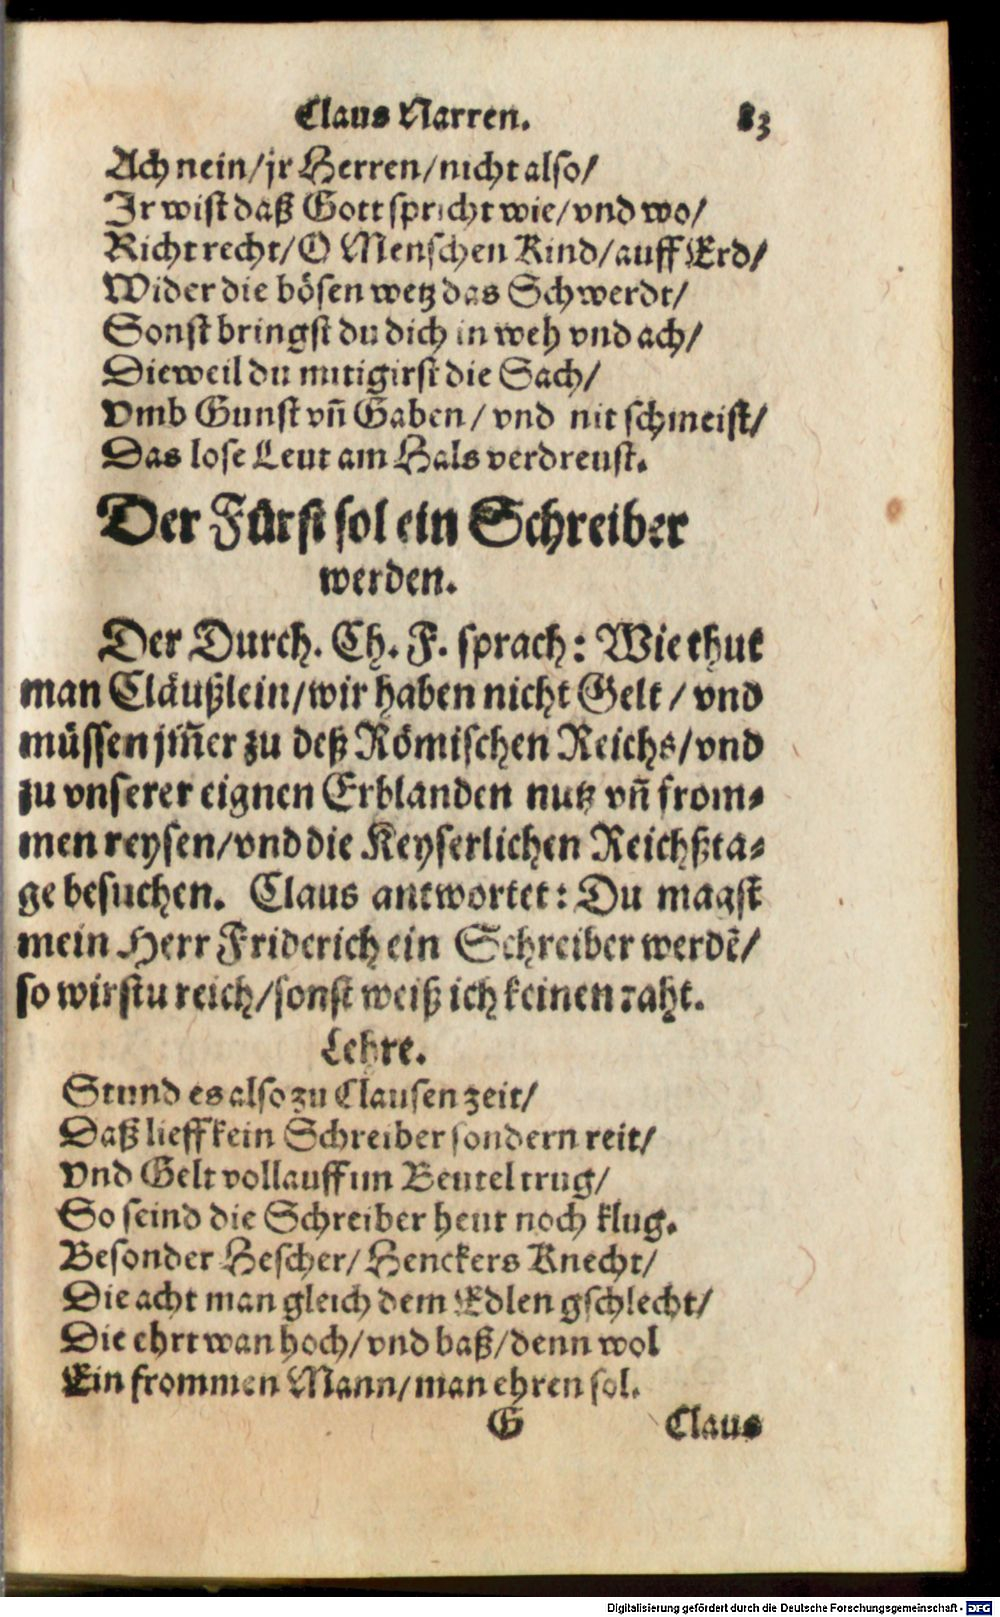 Claus Narren. 83
Ach nein/jr Herren/nicht also/
Jr wist daß Gott spricht wie/vnd wo/
Richt recht/O Menschen Kind/auff Erd/
Wider die bösen wetz das Schwerdt/
Sonst bringst du dich in weh vnd ach/
Dieweil du mitigirst die Sach/
Vmb Gunst vñ Gaben/ vnd nit schmeist/
Das lose Leut am Hals verdreust.
Der Fürst sol ein Schreiber
werden.
Der Durch. Ch. F. sprach: Wie thut
man Cläußlein/wir haben nicht Gelt / vnd
müssen jm̃er zu deß Römischen Reichs/vnd
zu vnserer eignen Erblanden nutz vñ from⸗
men reysen/vnd die Keyserlichen Reichßta⸗
ge besuchen. Claus antwortet: Du magst
mein Herr Friderich ein Schreiber werdẽ/
so wirstu reich/sonst weiß ich keinen raht.
Lehre.
Stund es also zu Clausen zeit/
Daß lieff kein Schreiber sondern reit/
Vnd Gelt vollauff im Beutel trug/
So seind die Schreiber heut noch klug.
Besonder Hescher/ Henckers Knecht/
Die acht man gleich dem Edlen gschlecht/
Die ehrt wan hoch/vnd baß/denn wol
Ein frommen Mann/man ehren sol.
G Claus
Digitalisierung gefördert durch die Deutsche Forschungsgemeinschaft - DFG